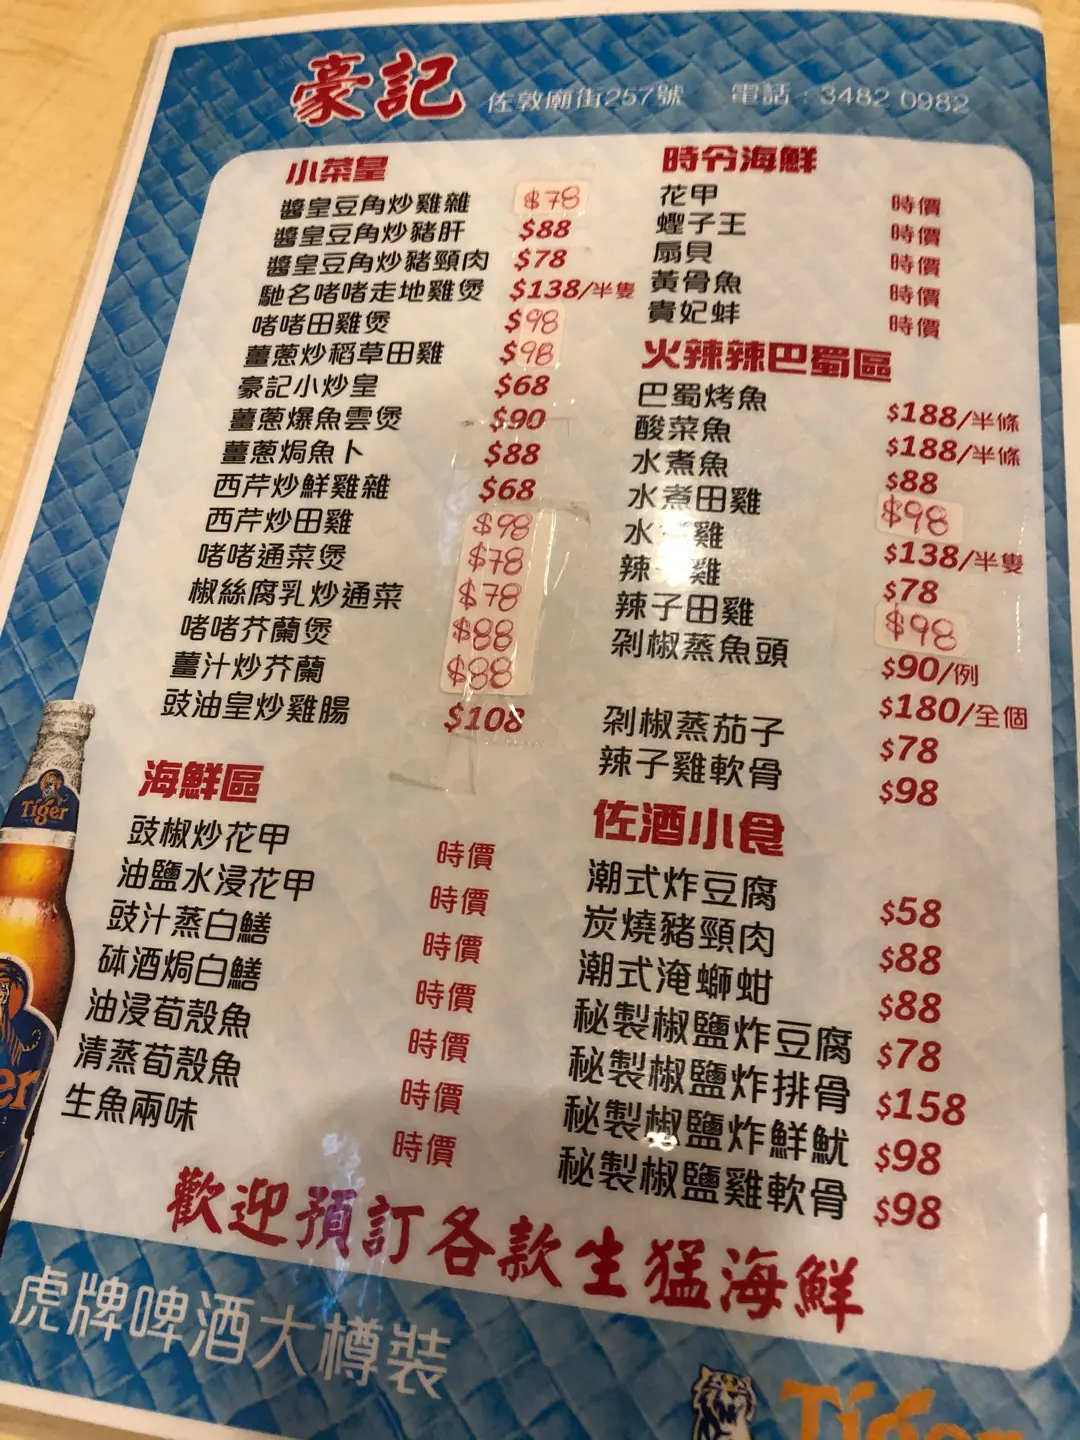 豪記 佐敦廟街257號 電話：3482 0982
小菜皇
醬皇豆角炒雞雜 $78
醬皇豆角炒豬肝 $88
醬皇豆角炒豬頸肉 $78
馳名啫啫走地雞煲 $138/半隻
啫啫田雞煲 $98
薑蔥炒稻草田雞 $98
豪記小炒皇 $68
薑蔥爆魚雲煲 $90
薑蔥焗魚卜 $88
西芹炒鮮雞雜 $68
西芹炒田雞 $98
啫啫通菜煲 $78
椒絲腐乳炒通菜 $78
啫啫芥蘭煲 $88
薑汁炒芥蘭 $88
豉油皇炒雞腸 $108
海鮮區
豉椒炒花甲 時價
油鹽水浸花甲 時價
豉汁蒸白鱔 時價
砵酒焗白鱔 時價
油浸荀殼魚 時價
清蒸荀殼魚 時價
生魚兩味 時價
時令海鮮
花甲 時價
蟶子王 時價
扇貝 時價
黃骨魚 時價
貴妃蚌 時價
火辣辣巴蜀區
巴蜀烤魚 $188/半條
酸菜魚 $188/半條
水煮魚 $88
水煮田雞 $98
水煮雞 $138/半隻
辣子雞 $78
辣子田雞 $98
剁椒蒸魚頭 $90/例
$180/全個
剁椒蒸茄子 $78
辣子雞軟骨 $98
佐酒小食
潮式炸豆腐 $58
炭燒豬頸肉 $88
潮式淹螄蚶 $88
秘製椒鹽炸豆腐 $78
秘製椒鹽炸排骨 $158
秘製椒鹽炸鮮魷 $98
秘製椒鹽雞軟骨 $98
歡迎預訂各款生猛海鮮
Tiger
er
虎牌啤酒大樽裝
Tiger